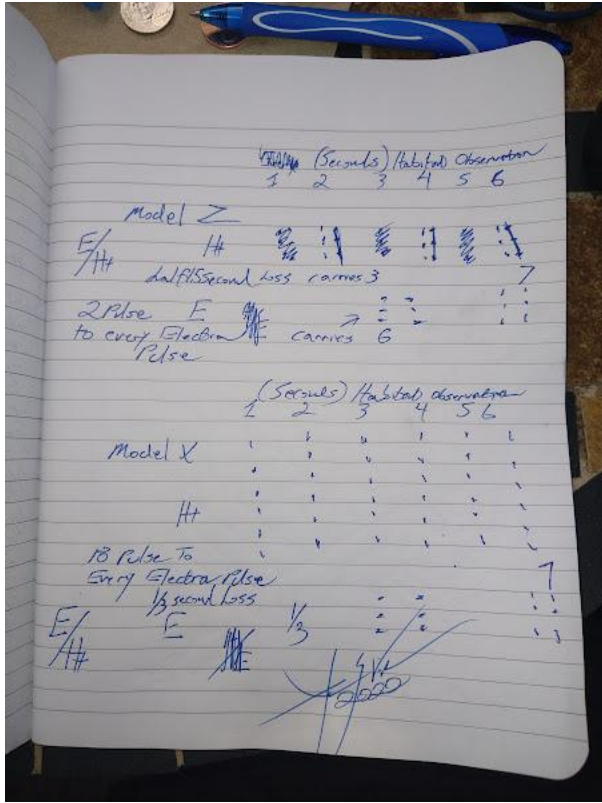 (Seconds) Habitat Observation
1 2 3 4 5 6
Model Z
E/H+ H+
half/15second Loss carries 3
7
2 Pulse E
to every Electra carries 6
Pulse
(Seconds) Habitat Observation
1 2 3 4 5 6
Model X
H+
18 Pulse To
Every Electra Pulse
7
1/3 second Loss
E/H+ E 1/3